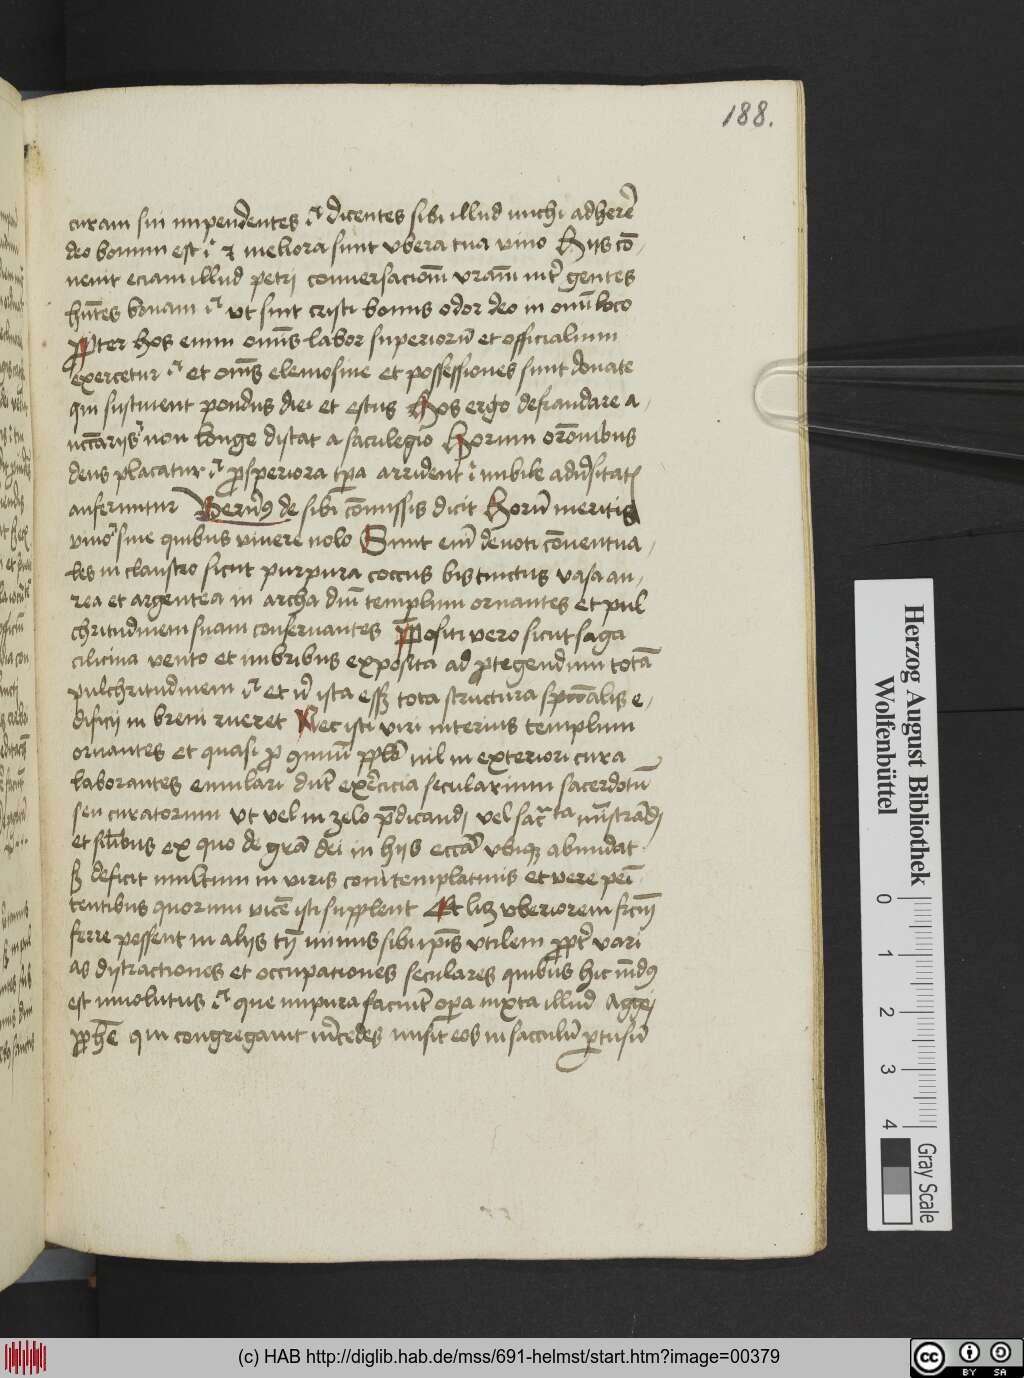 188.
curam sui impendentes dicentes sibi illud michi adherē
deo bonum est et meliora sunt vbera tua vino Hijs cō
uenit eciam illud petrij conuersacionē vrām intˀ gentes
hn̄tes bonam vt sint cristi bonus odor deo in omī loco
ꝓpter hos enim om̄s labor superiorū et officialium
exercetur et om̄s elemosine et possessiones sunt donate
qui sustinent pondus diei et estus Hos ergo defraudare a
non longe distat a sacrilegio Horum orōnibus
deus placatur ꝓsperiora tp̄a arrident nubile
auferuntur Bern̄9 de sibi cōmissis dicit Horū meritis
viuo sine quibus viuere nolo Sunt em̄ deuoti cōuentua
les in claustro sicut purpura coccus bis tinctus vasa au
rea et argentea in archa diuī templum ornantes et pul
chritudinem suam conseruantes ꝓpositi vero sicut saga
cilicina vento et imbribus exposita ad ꝓtegendum totā
pulchritudinem et nˀ ista essꝫ tota structura sp̄ualis e
dificij in breui rueret Nec isti viri interius templum
ornantes et quasi ꝓ ppl̄o nil in exteriori cura
laborantes emulari dn̄t exercicia secularium sacerdotū
seu curatorum vt vel in zelo p̄dicandj vel
et silībus ex quo de grā dei in hijs eccā vbiqꝫ abundat
sꝫ deficit multum in viris contemplatiuis et vere peni
tentibus quorum vicē isti supplent Et licꝫ vberiorem
ferre possent in alijs tn̄ minus sibi ip̄is vtilem ꝓptˀ vari
as distractiones et occupationes seculares quibus hic mūdꝰ
est inuolutus que impura faciūt opa iuxta illud Aggej
ꝓphē qui congregauit mˀcedes misit eos in sacculū ꝑtusū
Herzog August Bibliothek
Wolfenbüttel
0 1 2 3 4
Gray Scale
(c) HAB http://diglib.hab.de/mss/691-helmst/start.htm?image=00379
cc BY SA